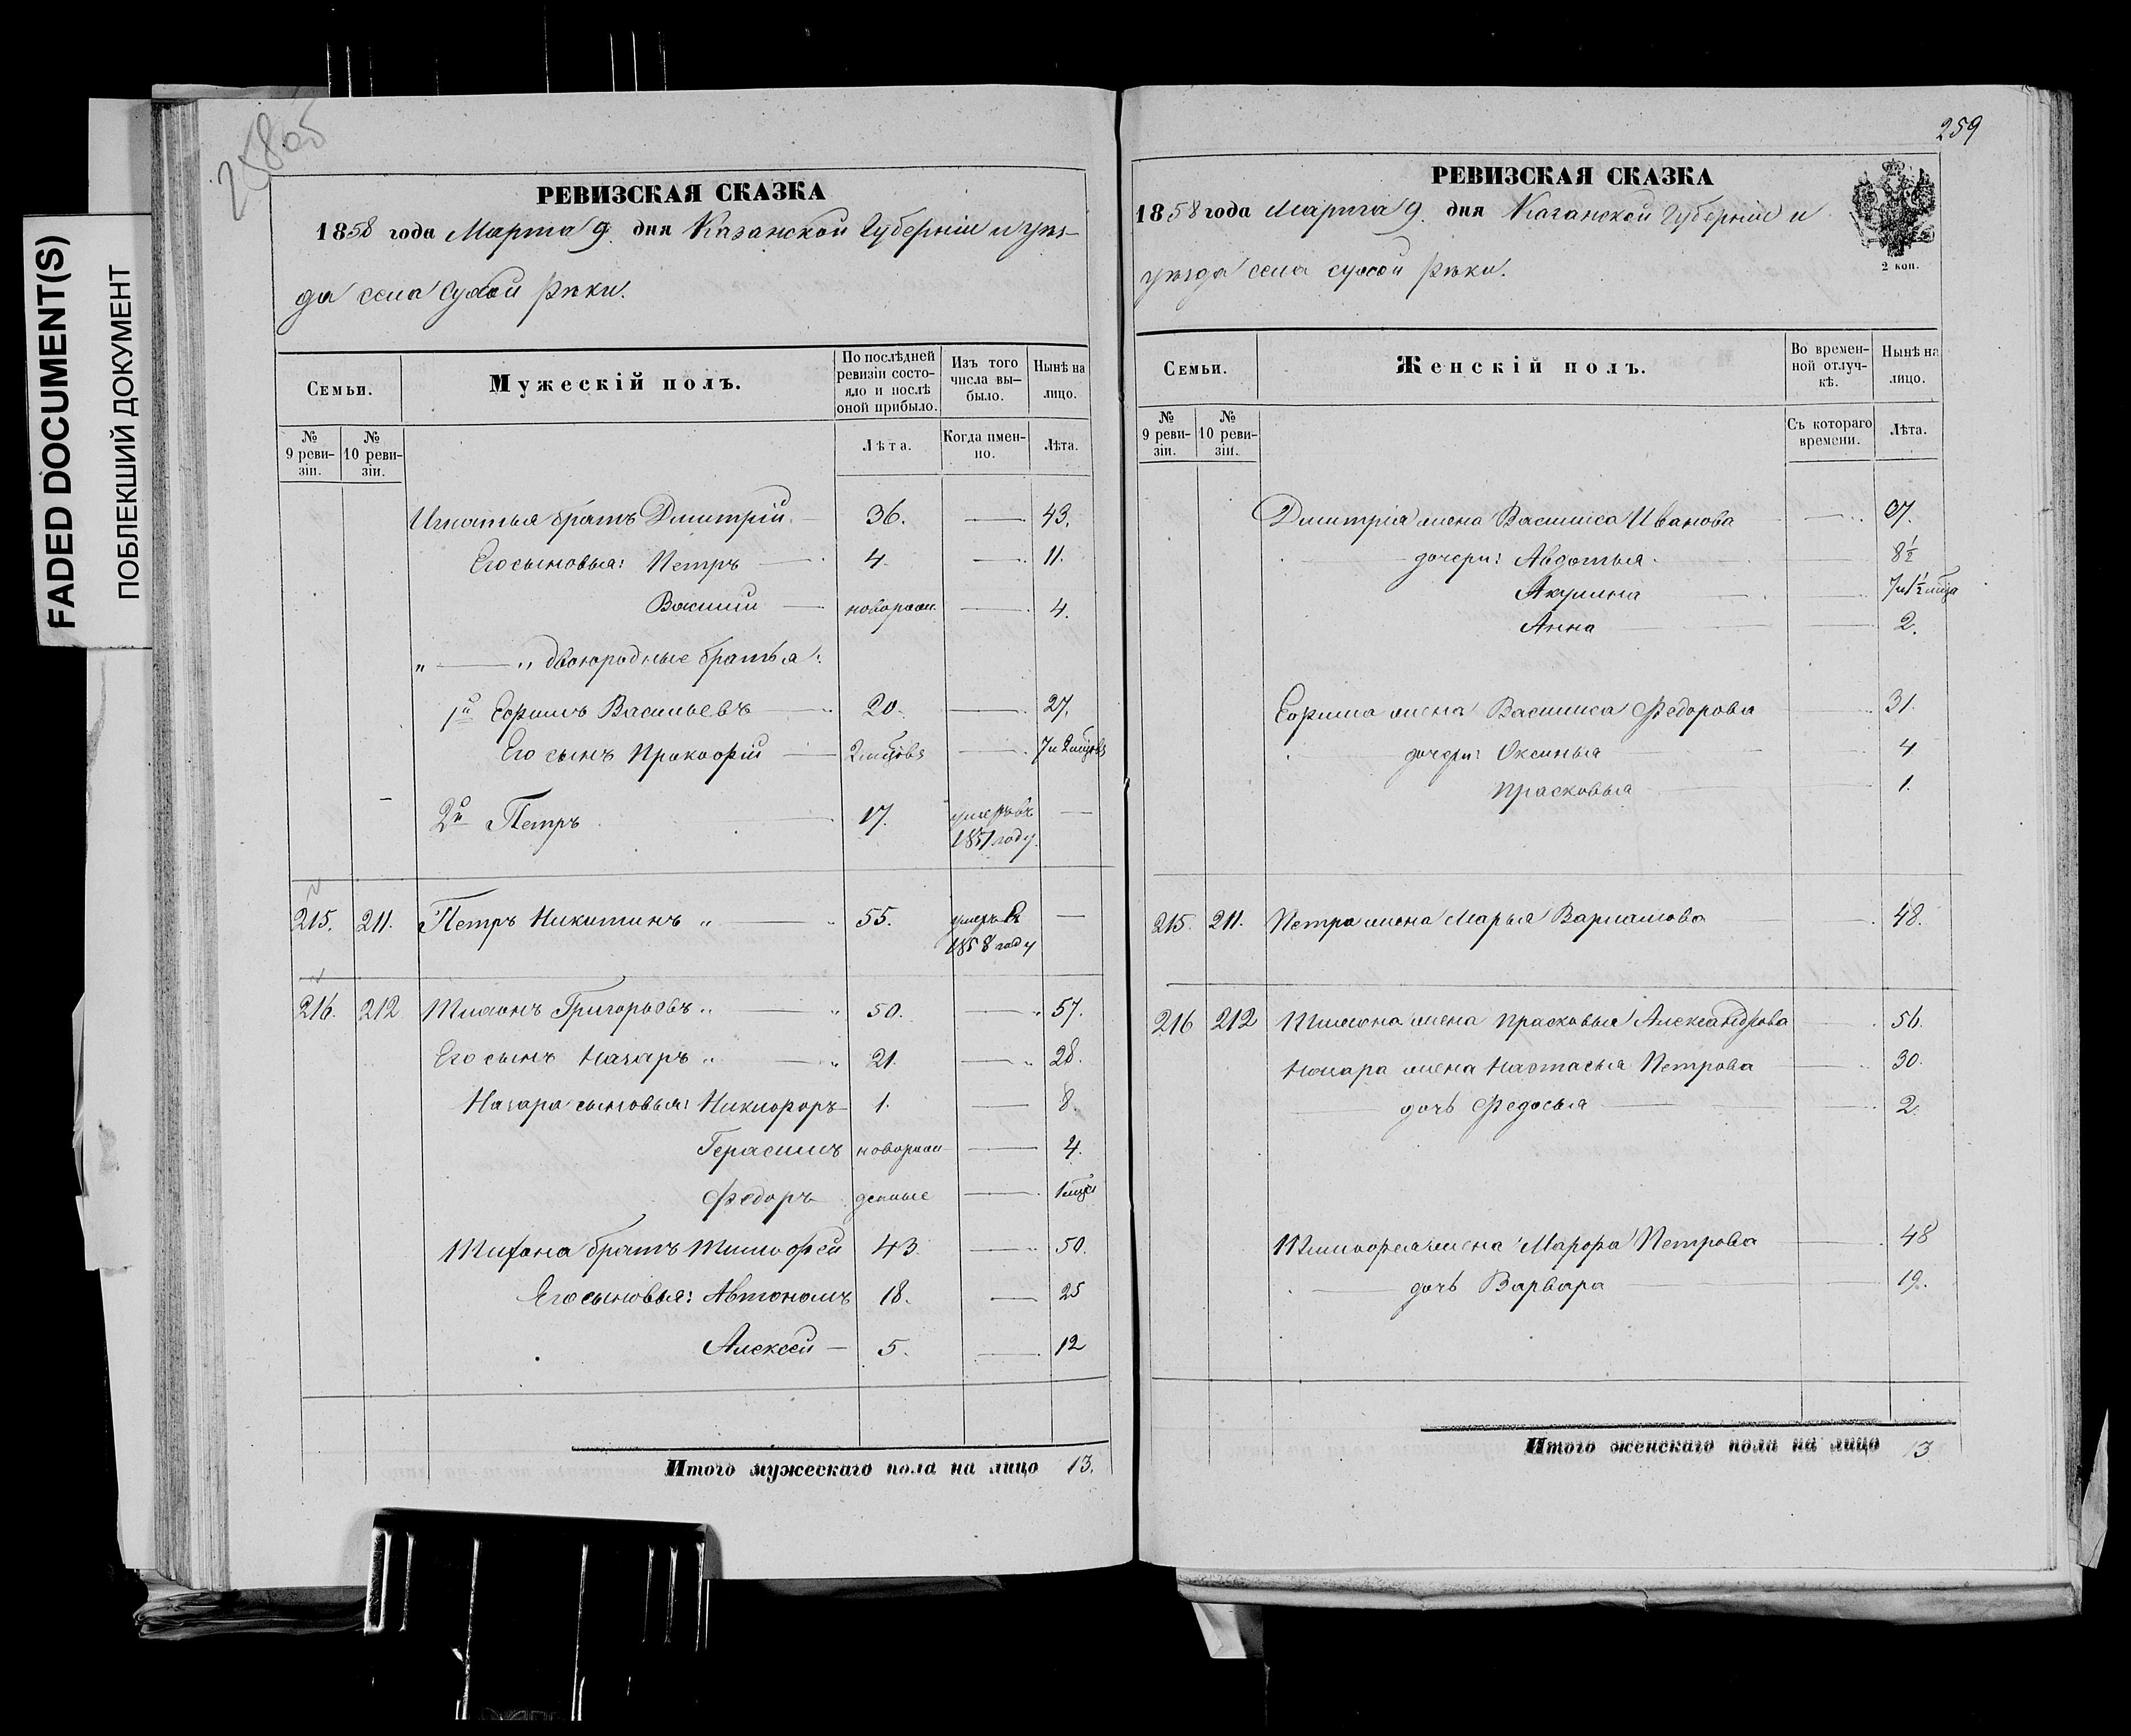 FADED DOCUMENT(S)
ПОБЛЕКШИЙ ДОКУМЕНТ
258об
РЕВИЗСКАЯ СКАЗКА
1858 года Марта 9. дня Казанской Губерніи и уѣз-
да села Сухой Рѣки.
Семьи.
Мужескій полъ.
По послѣдней ревизіи состо-яло и послѣ оной прибыло.
Изъ того числа вы-было.
Нынѣ на лицо.
№ 9 реви-зіи.
№ 10 реви-зіи.
Лѣта.
Когда имен-но.
Лѣта.
Игнатья братъ Дмитрій. 36. — 43.
Его сыновья: Петръ — 4. — 11.
Василій — новорож. — 4.
„ — „ двоюродные братья:
1й Ефимъ Васильевъ — 20. — 27.
Его сынъ Прокофій — 2 мцовъ — 7 и 2 мцовъ
2й Петръ 17. умеръ въ —
1851 году.
215. 211. Петръ Никитинъ „ — 55. умеръ въ —
1858 году
216. 212 Тихонъ Григорьевъ „ — „ 50. — „ 57.
Его сынъ Назаръ „ — „ 21. — „ 28.
Назара сыновья: Никифоръ 1. — 8.
Герасимъ новорож — 4.
Федоръ денные — 1 мца
Тихона братъ Тимофей 43. — 50.
Его сыновья: Автономъ 18. — 25
Алексей — 5. — 12
Итого мужескаго пола на лицо 13.
259
РЕВИЗСКАЯ СКАЗКА
1858 года Марта 9. дня Казанской Губерніи и
уѣзда села сухой рѣки.
2 коп.
Семьи.
Женскій полъ.
Во времен-ной отлуч-кѣ.
Нынѣ на лицо.
№ 9 реви-зіи.
№ 10 реви-зіи.
Съ котораго времени.
Лѣта.
Дмитрія жена Василиса Иванова —
— дочери: Авдотья. — 8½
Акулина — 7 и 1½ мца
Анна — 2.
Ефима жена Василиса Федорова — 31.
— дочери: Оксинья — 4
Прасковья — 1.
215. 211. Петра жена Марья Варламова — 48.
216 212 Тихона жена Прасковья Александрова — 56.
Назара жена Настасья Петрова — 30.
— дочь Федосья — 2.
Тимофея жена Марфа Петрова — 48
— дочь Варвара — 19.
Итого женскаго пола на лицо 13